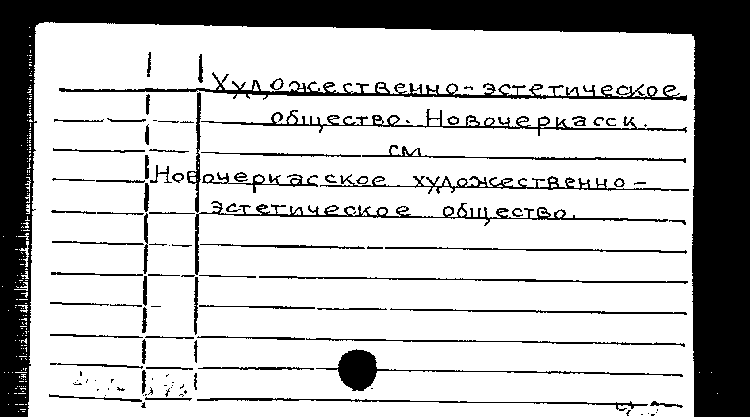 Художественно-эстетическое
общество. Новочеркасск.
см
Новочеркасское художественно-
эстетическое общество.